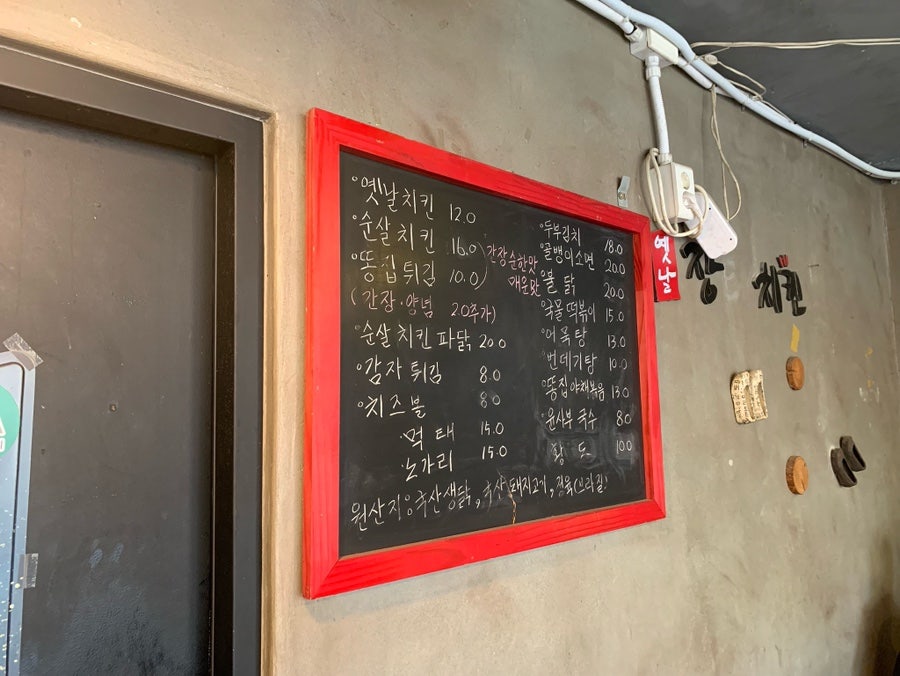 옛날치킨 12.0
순살치킨 16.0
똥집튀김 10.0
간장순한맛
매운맛
(간장·양념 2.0추가)
순살치킨파닭 20.0
감자튀김 8.0
치즈볼 8.0
먹태 15.0
노가리 15.0
두부김치 18.0
골뱅이소면 20.0
불닭 20.0
국물떡볶이 15.0
어묵탕 13.0
번데기탕 10.0
똥집야채볶음 13.0
윤사부국수 8.0
황도 10.0
원산지: 국산생닭, 국산돼지고기, 정육(브라질)
옛날
장
치킨